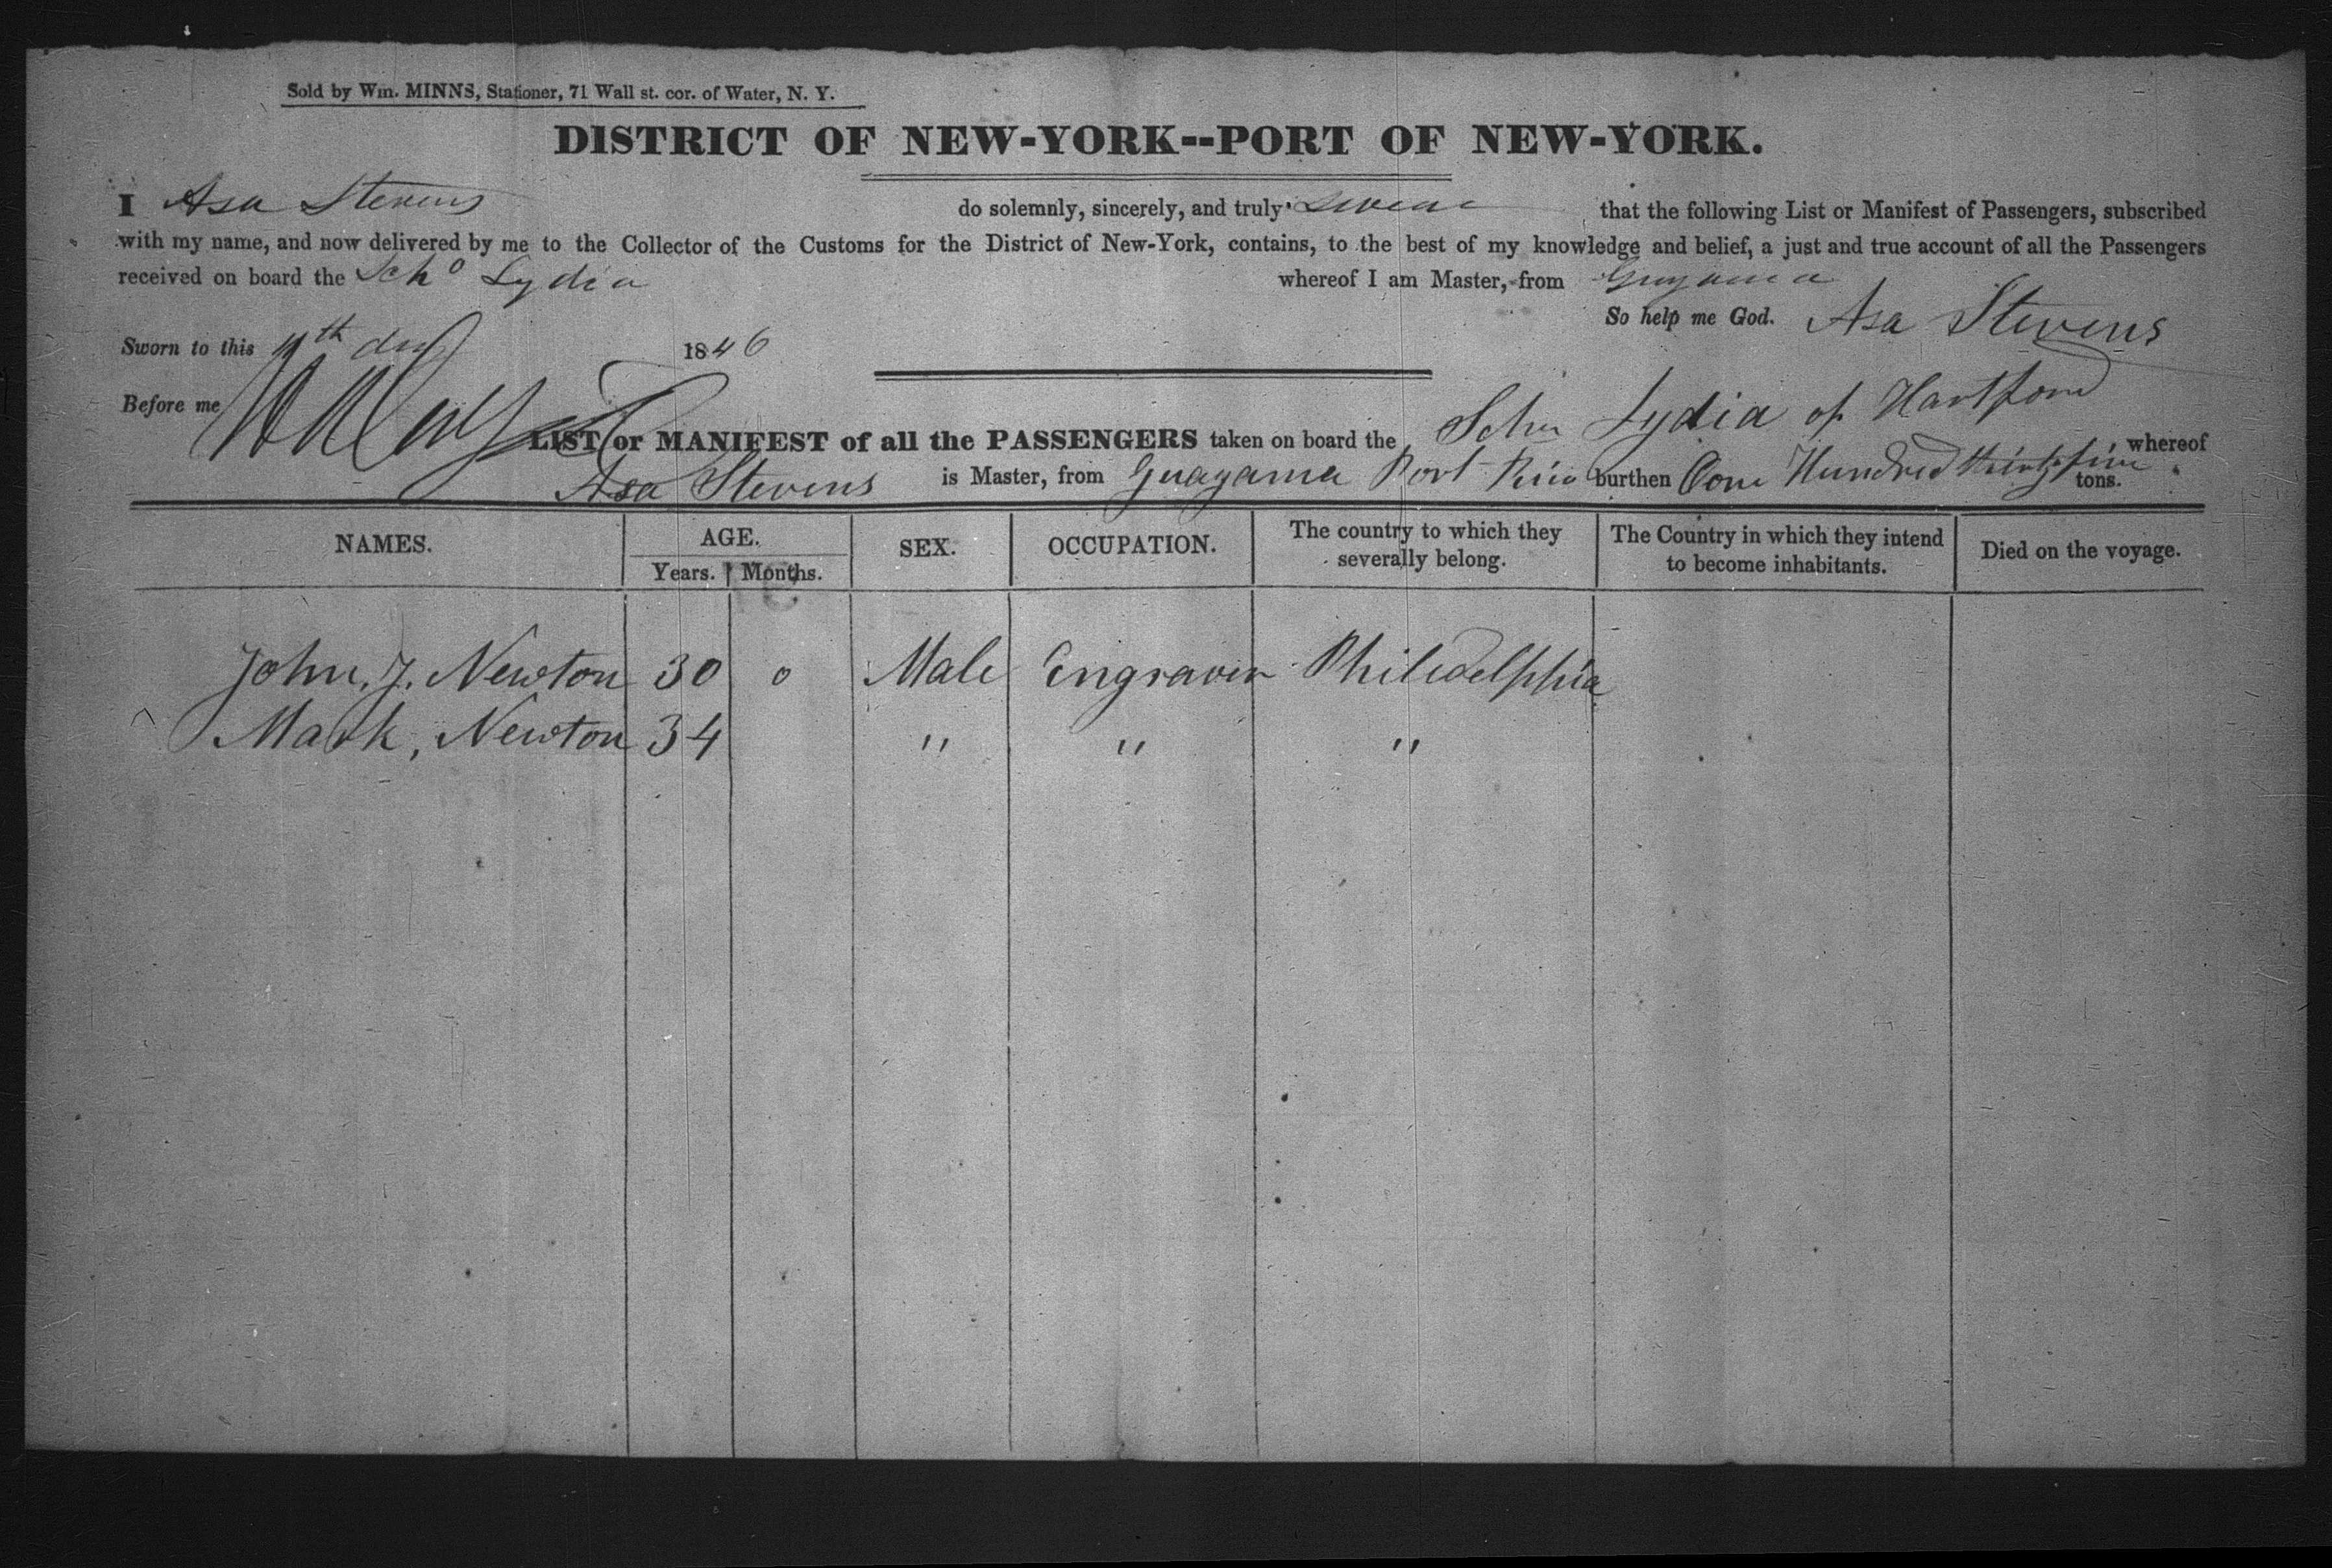 Sold by Wm. MINNS, Stationer, 71 Wall st. cor. of Water, N. Y.
DISTRICT OF NEW-YORK--PORT OF NEW-YORK.
I Asa Stevens do solemnly, sincerely, and truly swear that the following List or Manifest of Passengers, subscribed
with my name, and now delivered by me to the Collector of the Customs for the District of New-York, contains, to the best of my knowledge and belief, a just and true account of all the Passengers
received on board the Schr Lydia whereof I am Master, from Guyama
So help me God. Asa Stevens
Sworn to this 11th day 1846
Before me
LIST or MANIFEST of all the PASSENGERS taken on board the Schr Lydia of Hartford whereof
Asa Stevens is Master, from Guayama Port Rico burthen One Hundred thirty five tons.
NAMES. AGE. SEX. OCCUPATION. The country to which they severally belong. The Country in which they intend to become inhabitants. Died on the voyage.
Years. Months.
John. J. Newton 30 0 Male Engraver Philidelphia
Mark, Newton 34 " " "